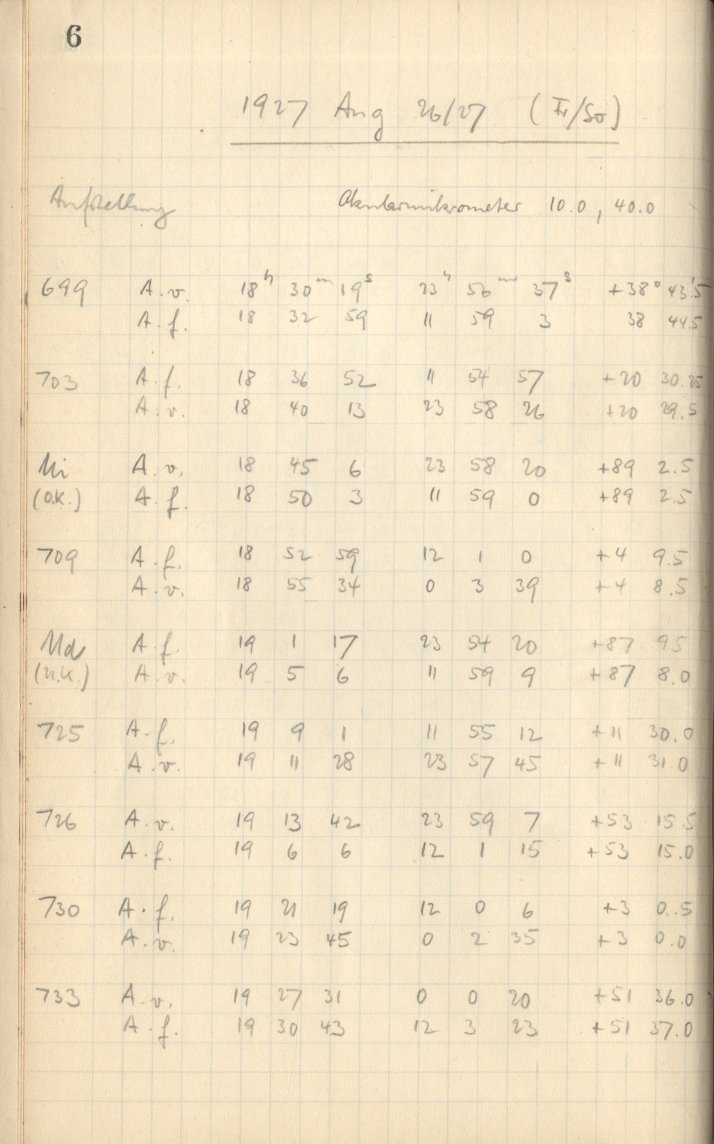 6
1927 Aug 26/27 (Fr/So)
Aufstellung Okularmikrometer 10.0, 40.0
699 A.v. 18h 30m 19s 23h 56m 37s +38° 43'.5
A.f. 18 32 59 11 59 3 38 44.5
703 A.f. 18 36 52 11 54 57 +20 30.25
A.v. 18 40 13 23 58 26 +20 29.5
Mi A.v. 18 45 6 23 58 20 +89 2.5
(O.K.) A.f. 18 50 3 11 59 0 +89 2.5
709 A.f. 18 52 59 12 1 0 +4 9.5
A.v. 18 55 34 0 3 39 +4 8.5
Md A.f. 19 1 17 23 54 20 +87 9.5
(U.K.) A.v. 19 5 6 11 59 9 +87 8.0
725 A.f. 19 9 1 11 55 12 +11 30.0
A.v. 19 11 28 23 57 45 +11 31.0
726 A.v. 19 13 42 23 59 7 +53 15.5
A.f. 19 6 6 12 1 15 +53 15.0
730 A.f. 19 21 19 12 0 6 +3 0.5
A.v. 19 23 45 0 2 35 +3 0.0
733 A.v. 19 27 31 0 0 20 +51 36.0
A.f. 19 30 43 12 3 23 +51 37.0